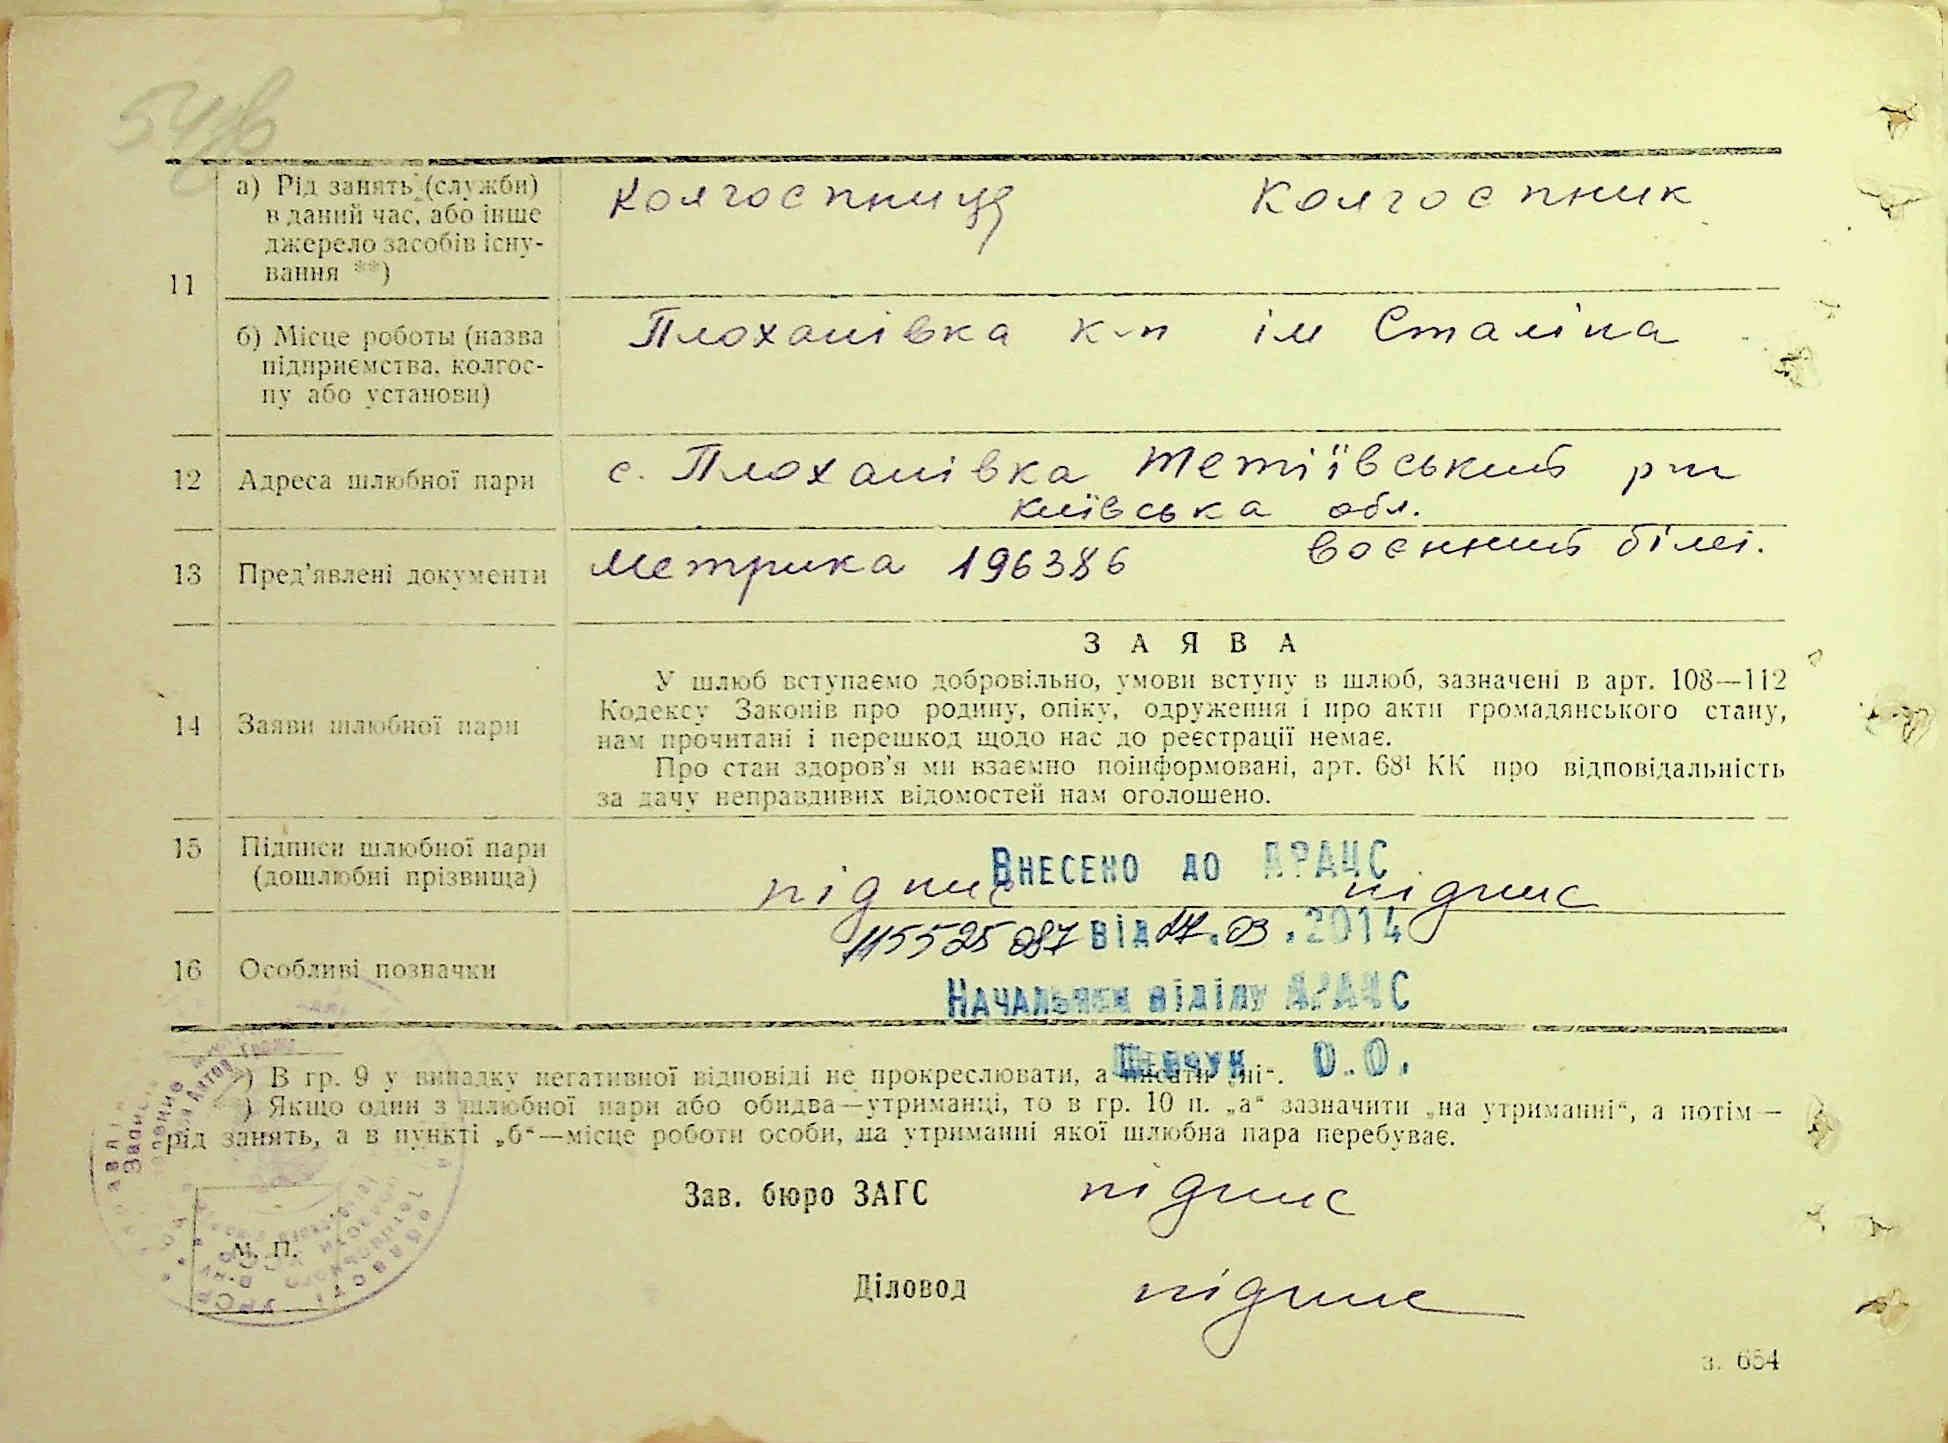 а) Рід занять (служби)
в даний час, або інше
джерело засобів існу-
вання **)
Колгоспниця Колгоспник
11
б) Місце роботы (назва
підприємства, колгос-
пу або установи)
Плоханівка к-п ім Сталіна
12 Адреса шлюбної пари
с. Плоханівка Тетіївський рн
Київська обл.
13 Пред'явлені документи
Метрика 196386 воєнний білєт.
14 Заяви шлюбної пари
ЗАЯВА
У шлюб вступаємо добровільно, умови вступу в шлюб, зазначені в арт. 108—112
Кодексу Законів про родину, опіку, одруження і про акти громадянського стану,
нам прочитані і перешкод щодо нас до реєстрації немає.
Про стан здоров'я ми взаємно поінформовані, арт. 68¹ КК про відповідальність
за дачу неправдивих відомостей нам оголошено.
15 Підписи шлюбної пари
(дошлюбні прізвища)
Внесено до ДРАЦС
підпис підпис
115525087 від 17.03.2014
16 Особливі позначки
Начальник відділу ДРАЦС
Шевчук О.О.
*) В гр. 9 у випадку негативної відповіді не прокреслювати, а писати „ні“.
**) Якщо один з шлюбної пари або обидва—утриманці, то в гр. 10 п. „а“ зазначити „на утриманні“, а потім—
рід занять, а в пункті „б“—місце роботи особи, на утриманні якої шлюбна пара перебуває.
Зав. бюро ЗАГС підпис
М. П.
Діловод підпис
з. 654